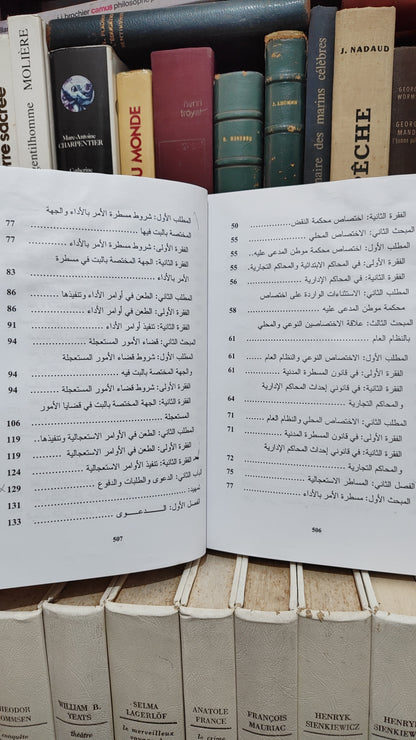 brochier camus philosophe
sacrée
MOLIÈRE
gentilhomme
Marc-Antoine
CHARPENTIER
Catherine
DU MONDE
henri
troyat
des marins célèbres
J. NADAUD
PÊCHE
الفقرة الثانية: اختصاص محكمة النقض ............ 50
المبحث الثاني: الاختصاص المحلي ............ 55
المطلب الأول: اختصاص محكمة موطن المدعى عليه... 55
الفقرة الأولى: في المحاكم الابتدائية والمحاكم التجارية. 55
الفقرة الثانية: في المحاكم الإدارية ............ 58
المطلب الثاني: الاستثناءات الواردة على اختصاص
محكمة موطن المدعى عليه ............ 58
المبحث الثالث: علاقة الاختصاصين النوعي والمحلي
بالنظام العام ............ 61
المطلب الأول: الاختصاص النوعي والنظام العام ... 61
الفقرة الأولى: في قانون المسطرة المدنية ............ 61
الفقرة الثانية: في قانوني إحداث المحاكم الإدارية
والمحاكم التجارية ............ 64
المطلب الثاني: الاختصاص المحلي والنظام العام .... 71
الفقرة الأولى: في قانون المسطرة المدنية ............ 71
الفقرة الثانية: في قانوني إحداث المحاكم الإدارية
والمحاكم التجارية ............ 72
الفصل الثاني: المساطر الاستعجالية ............ 75
المبحث الأول: مسطرة الأمر بالأداء ............ 77
506
المطلب الأول: شروط مسطرة الأمر بالأداء والجهة
المختصة بالبت فيها ............ 77
الفقرة الأولى: شروط مسطرة الأمر بالأداء ............ 77
الفقرة الثانية: الجهة المختصة بالبت في مسطرة
الأمر بالأداء ............ 83
المطلب الثاني: الطعن في أوامر الأداء وتنفيذها ... 86
الفقرة الأولى: الطعن في أوامر الأداء ............ 86
الفقرة الثانية: تنفيذ أوامر الأداء ............ 91
المبحث الثاني: قضاء الأمور المستعجلة ............ 94
المطلب الأول: شروط قضاء الأمور المستعجلة
والجهة المختصة بالبت فيه ............ 94
الفقرة الأولى: شروط قضاء الأمور المستعجلة ...... 94
الفقرة الثانية: الجهة المختصة بالبت في قضايا الأمور
المستعجلة ............ 106
المطلب الثاني: الطعن في الأوامر الاستعجالية وتنفيذها.. 119
الفقرة الأولى: الطعن في الأوامر الاستعجالية ........ 119
الفقرة الثانية: تنفيذ الأوامر الاستعجالية ............ 124
الباب الثاني: الدعوى والطلبات والدفوع ............ 129
تمهيد: ............ 131
الفصل الأول: الـدعـــوى ............ 133
507
WILLIAM B.
YEATS
théâtre
SELMA
LAGERLÖF
le merveilleux
ANATOLE
FRANCE
le crime
FRANÇOIS
MAURIAC
HENRYK
SIENKIEWICZ
HENRYK
SIENKIEWICZ